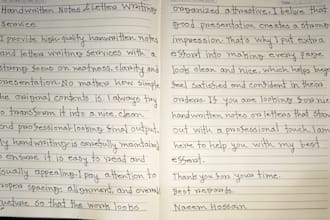 Handwritten Notes & Letter Writing
Service
I provide high-quality handwritten notes
and letter writing services with a
strong focus on neatness, clarity and
presentation. No matter how simple
the original content is, I always try
to transform it into a nice, clean
and professional-looking final output.
My handwriting is carefully maintained
to ensure it is easy to read and
visually appealing. I pay attention to
proper spacing, alignment, and overall
so that the work looks
organized attractive. I believe that
good presentation creates a strong
impression. That's why I put extra
effort into making every page
looks clean and nice, which helps
feel satisfied and confident in their
orders. If you are looking for
handwritten notes or letters that stand
out with a professional touch, I am
here to help you with my best
effort.
Thank you for your time.
Best regards.
Naeem Hossain